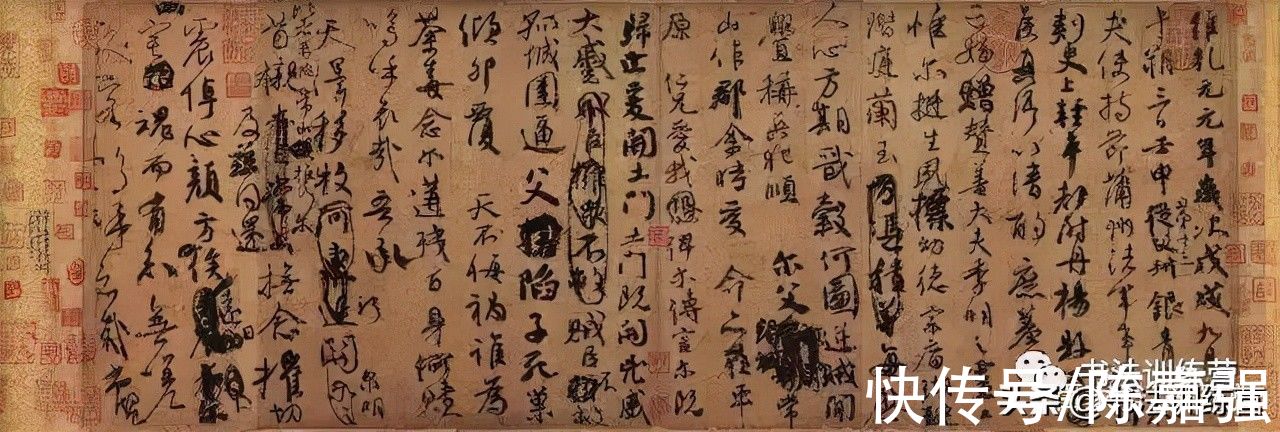 維乾元元年歲次戊戌九
午朔三日壬申第十三從父銀青
夫使持節蒲州諸軍事
刺史上輕車都尉丹楊縣
侯真卿以清酌庶羞
亡姪贈贊善大夫季明之
惟爾挺生夙標幼德宗廟
階庭蘭玉每
人心方期戩穀何圖逆賊閒
釁稱兵犯順爾父常
山作郡余時受命亦在平
原仁兄愛我俾爾傳言爾既
歸止爰開土門土門既開凶威
大蹙賊臣不
孤城圍逼父陷子死巢
傾卵覆天不悔禍誰為
荼毒念爾遘殘百身何贖
嗚呼哀哉吾承
天澤移牧河關泉明
比者再陷常山
首櫬及茲同還撫念摧切
震悼心顏方俟遠日
宅魂而有知無嗟
久客嗚呼哀哉尚饗
书法训练营
快传号/陈嘉强